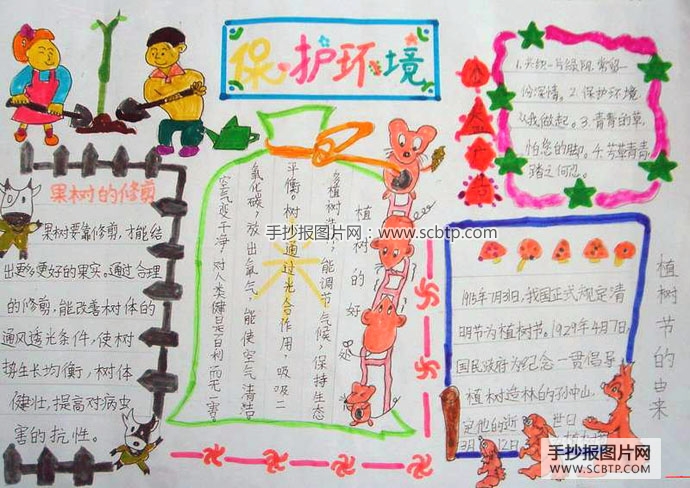 保护环境
1. 一片绿 常留
一份深情。2.保护环境,
从我做起。3.青青的草,
怕您的脚。4.芳草青青
踏之何忍。
果树的修剪
果树要靠修剪,才能结
出更多更好的果实。通过合理
的修剪,能改善树体的
通风透光条件,使树
生长均衡,树体
健壮,提高对病虫
害的抗性。
植树的好处
多植树造 能调节气候,保持生态
平衡。树 通过光合作用,吸 二
氧化碳,放出氧气,能使空气清洁
空气变干净,对人类健是百利而无一害。
植树节的由来
1915年7月31日,我国正式规定清
明节为植树节。1929年4月7日,
国民政府为纪念一贯倡导
植树造林的孙中山,
定他的 世日
3月12日
手抄报图片网:www.scbtp.com
手抄报图片网
WWW.SCBTP.COM